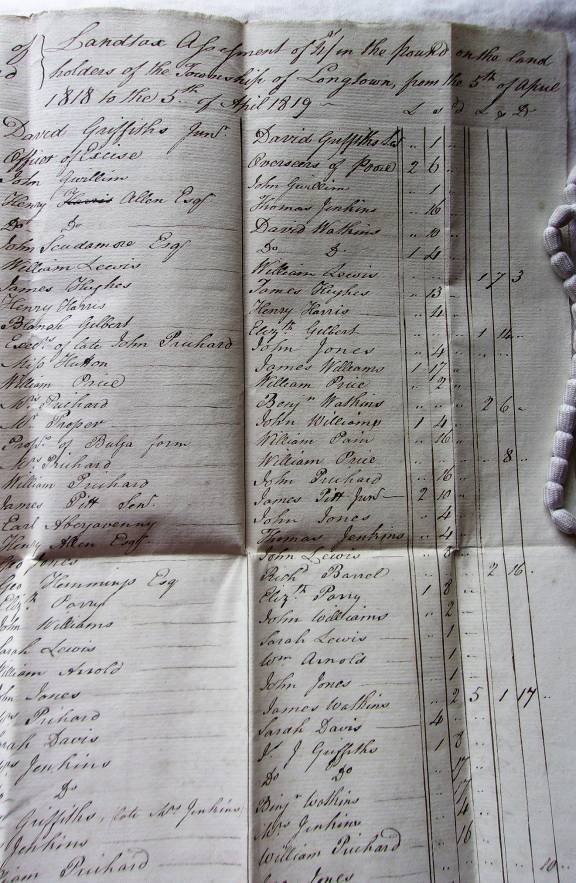 of } Landtax Assessment of 4s/ in the Pound on the Land
holders of the Township of Longtown, from the 5th of April
1818 to the 5th of April 1819
L s d L s D
David Griffiths Junr David Griffiths 1
Officer of Excise Overseers of Poor 2 6
John Gwillim John Gwillim 1
Henry Allen Esqr Thomas Jenkins 16
Do Do David Watkins 10
John Scudamore Esqr Do Do 1 4
William Lewis William Lewis 1 7 3
James Hughes James Hughes 13
Henry Harris Henry Harris 4
Blanch Gilbert Elizth Gilbert 1 14
Execrs of late John Prichard John Jones 4
Miss Hutton James Williams 1 17
William Price William Price 2
Mrs Prichard Benjn Watkins 2 6
Mrs Proper John Williams 1 4
Proprs of Bulga farm William Pain 16
Mrs Prichard William Price 8
William Prichard John Prichard 16
James Pitt Senr James Pitt Junr 2 10
Earl Abergavenny John Jones 4
Henry Allen Esqr Thomas Jenkins 4
Jones John Lewis 8
Geo Hemmings Esq Richd Barrel 2 16
Elizth Parry Elizth Parry 1 8
John Williams John Williams 2
Sarah Lewis Sarah Lewis 1
William Arnold Wm Arnold 1
John Jones John Jones 1
Mrs Prichard James Watkins 2 5 1 17
Sarah Davis Sarah Davis 4
Mrs Jenkins J Griffiths 1 8
Do Do Do 17
Griffiths, late Mrs Jenkins Benjn Watkins
Jenkins Mrs Jenkins 4
William Prichard William Prichard 16
Jones 10